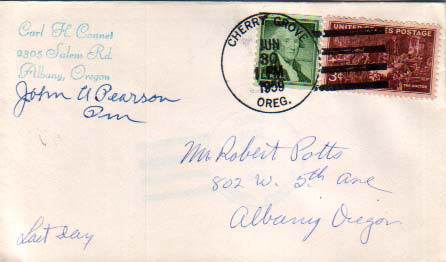 Carl H Connet
2805 Salem Rd.
Albany, Oregon
John A Pearson
Pm
CHERRY GROVE
JUN
30
PM
1959
OREG.
UNITED STATES POSTAGE
3¢
THE DOCTOR
Mr Robert Potts
802 W. 5th ave
Albany Oregon
Last day